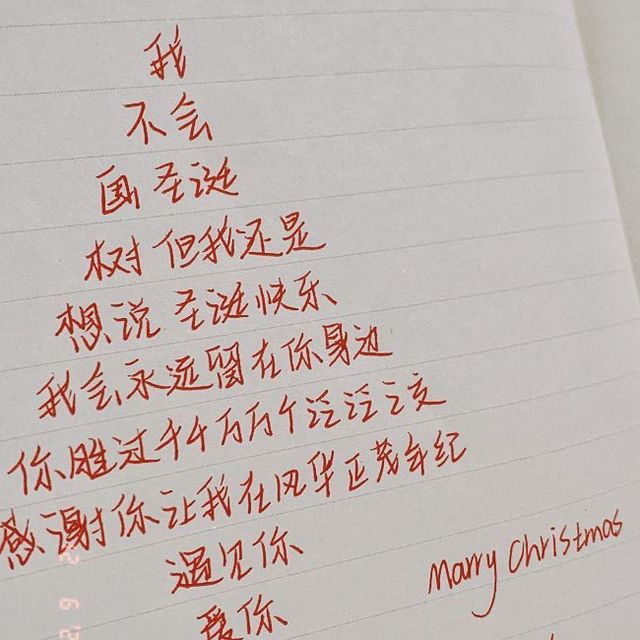 我
不会
画圣诞
树但我还是
想说圣诞快乐
我会永远留在你身边
你胜过千千万万个泛泛之交
感谢你让我在风华正茂年纪
遇见你
爱你
Marry Christmas